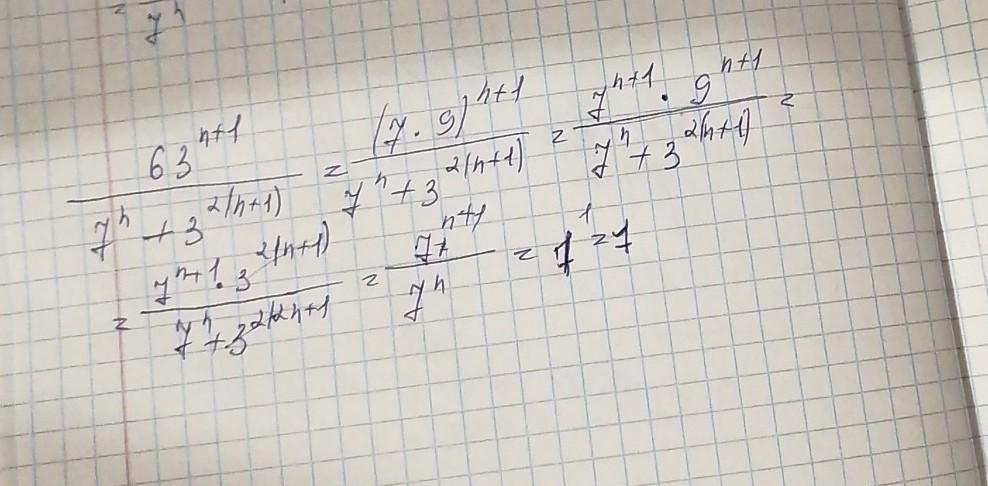 = 7^n
63^(n+1) / (7^n + 3^(2(n+1))) = (7 · 9)^(n+1) / (7^n + 3^(2(n+1))) = 7^(n+1) · 9^(n+1) / (7^n + 3^(2(n+1))) =
= 7^(n+1) · 3^(2(n+1)) / (7^n + 3^(2(2n+1)) = 7^(n+1) / 7^n = 7^1 = 7